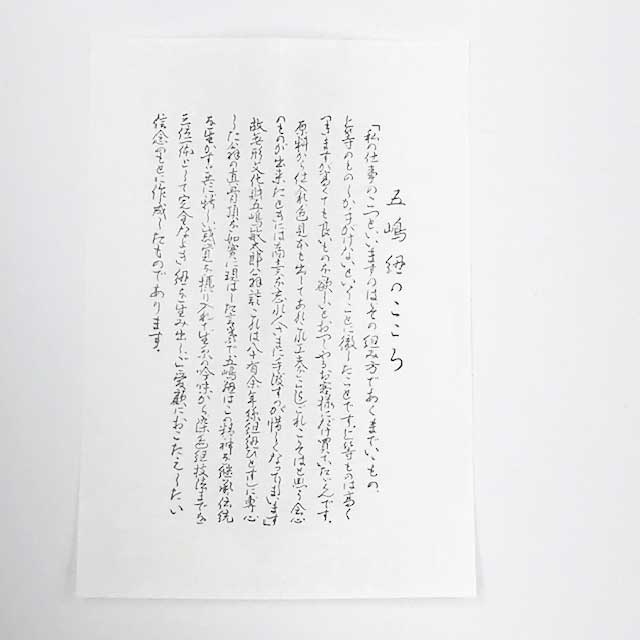 五嶋紐のこころ
「私の仕事のこつといいますのはその組み方であくまでいいもの、
上等のものしか手がけないということに徹したことです。上等なものは高く
つきますが高くても良いものを欲しいとおっしゃるお客様にだけ買っていただくんです。
原料から仕入れ色見本も出してあれこれ工夫しこれこそはと思う会心
のものが出来たときには商売を忘れ人さまに手渡すが惜しくなってしまいます」
故無形文化財五嶋敏太郎翁談これは八十有余年組紐ひとすじに専心
した翁の真骨頂を如実に現はした言葉で五嶋紐はこの精神を継承伝統
を生かすと共に新しい感覚を採り入れ生糸の吟味から染色組技法までを
三位一体として完全なよき紐を生み出しご愛顧におこたえしたい
信念のもとに作成したものであります。